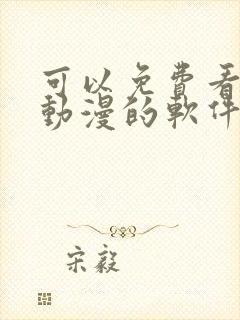 可以免費看
動漫的軟件
宋毅